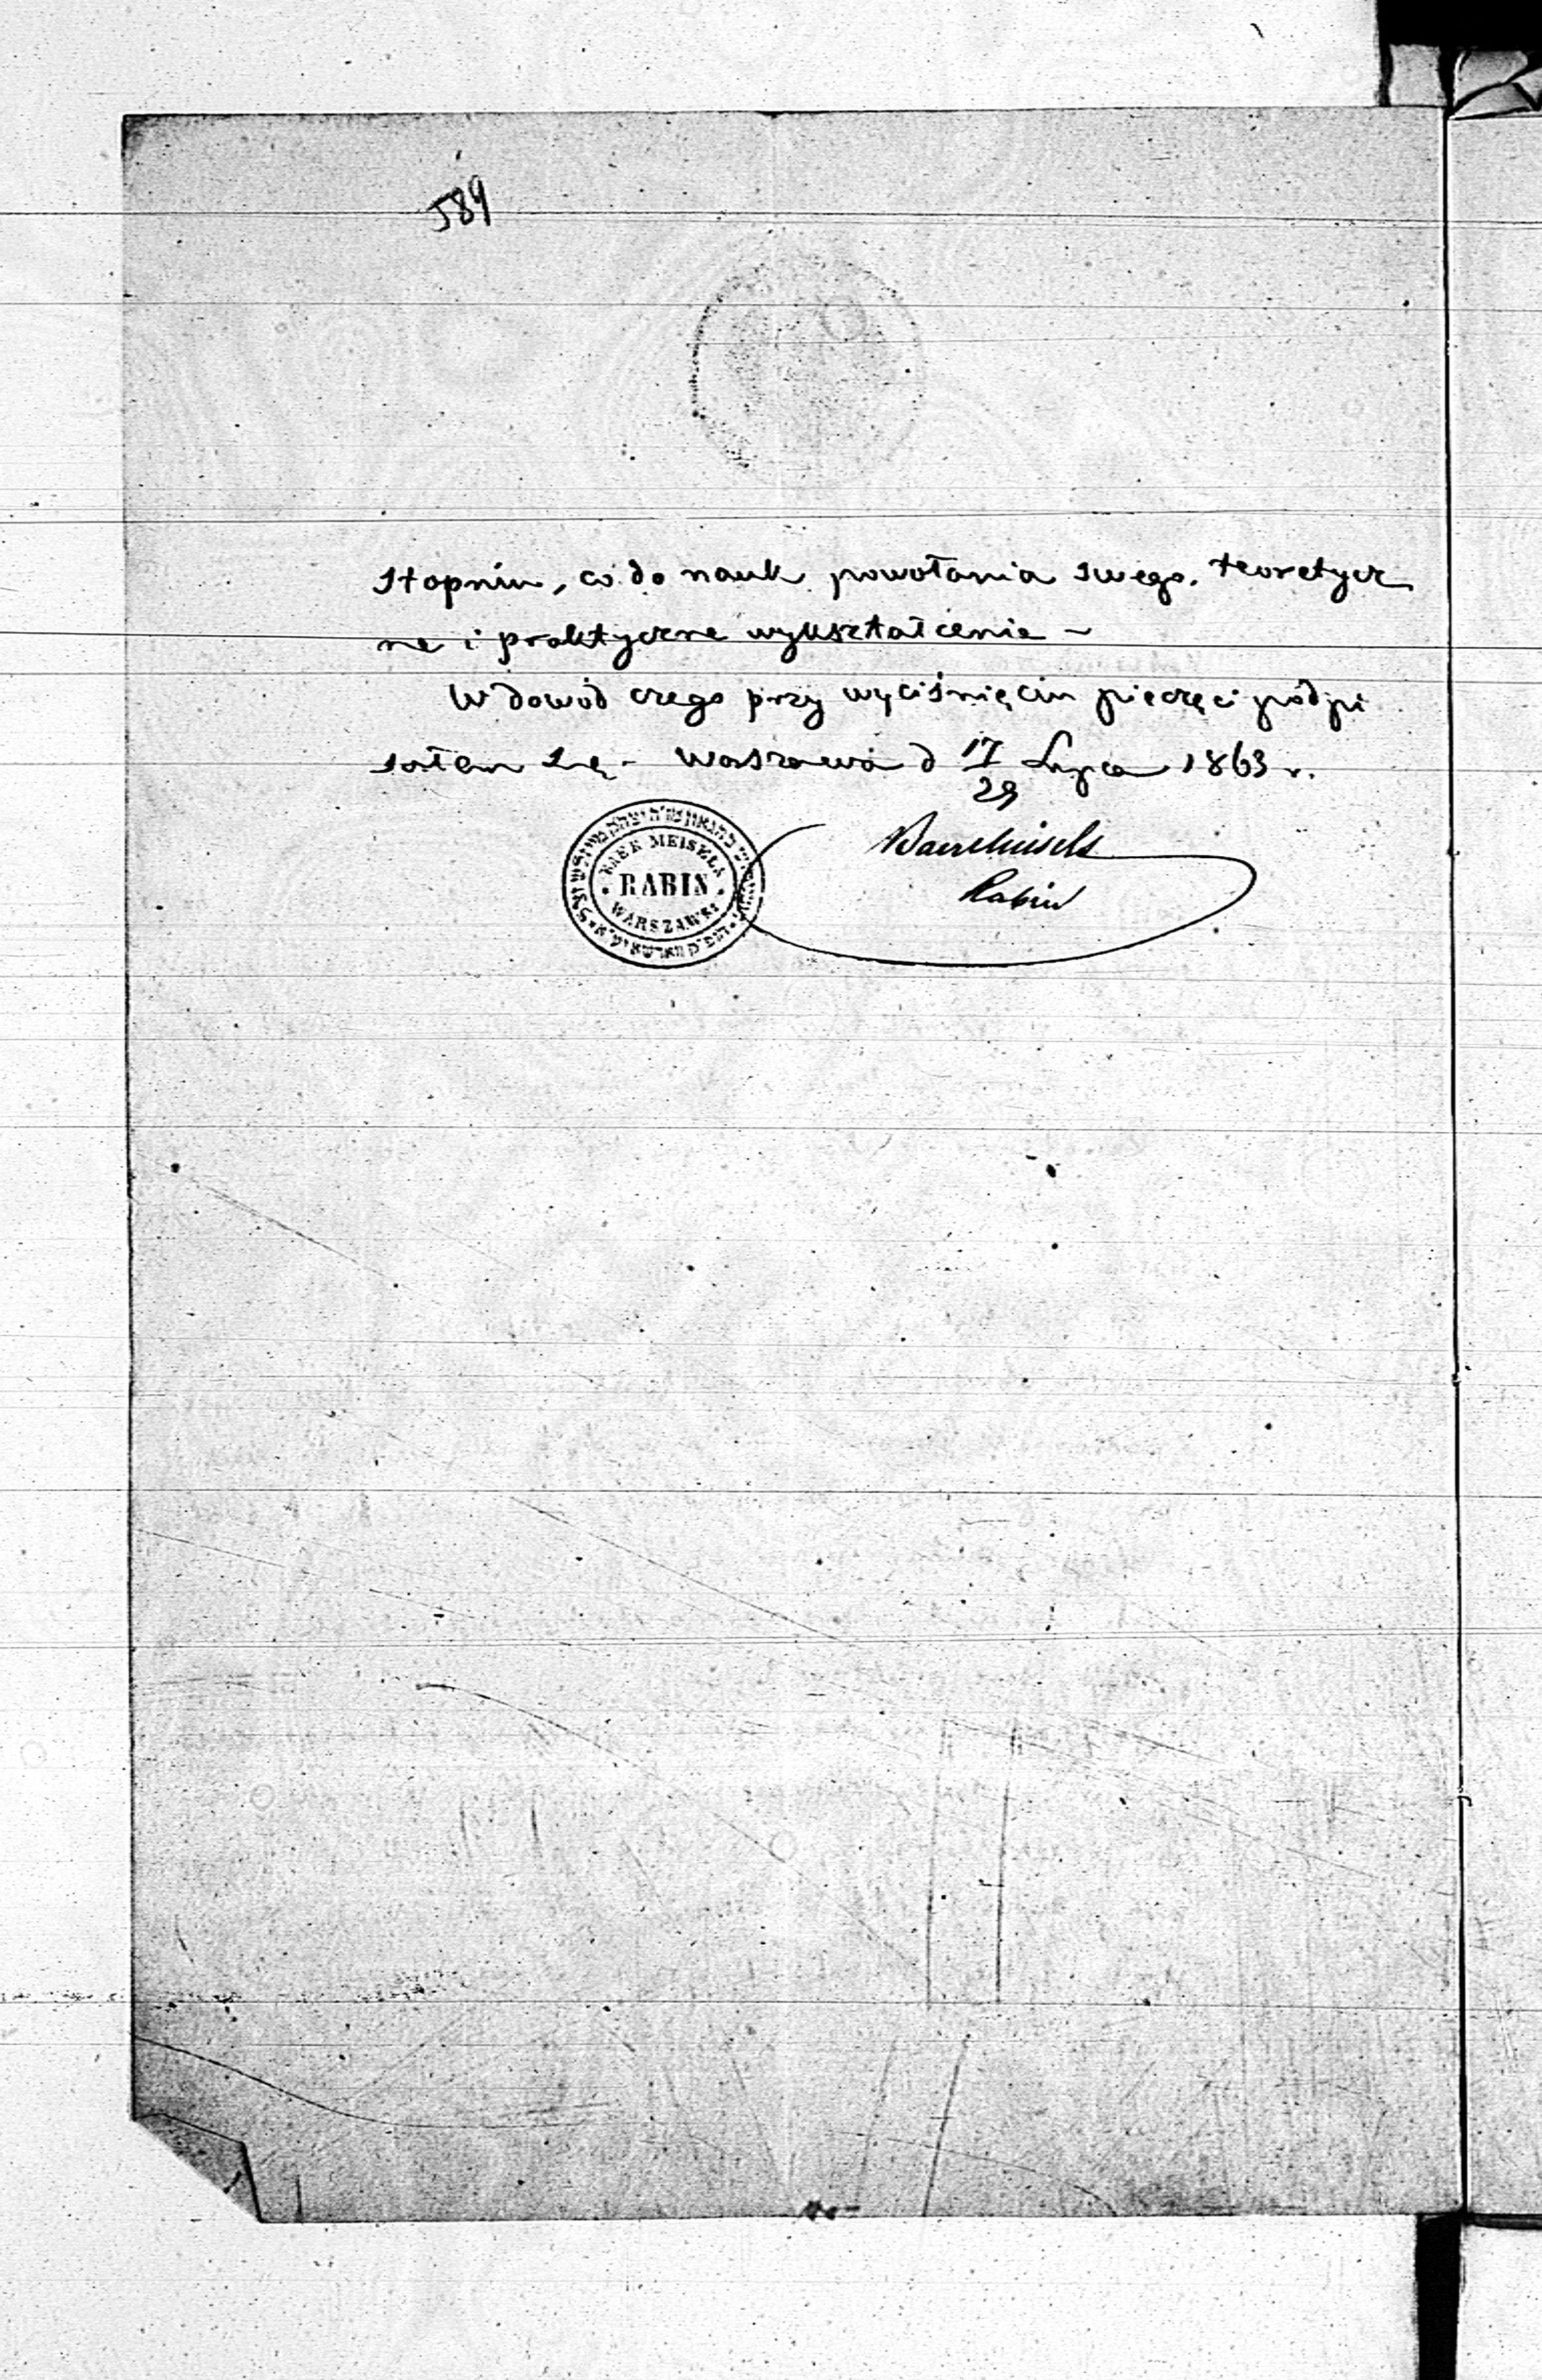 589
stopniu, co do nauk powołania swego, teoretycz
ne i praktyczne wykształcenie –
W dowód czego przy wyciśnięciu pieczęci podpi
sałem się – Warszawa d 17/29 Lipca 1863 r.
BAER MEISELS
RABIN
WARSZAWSKI
Baer Meisels
Rabin